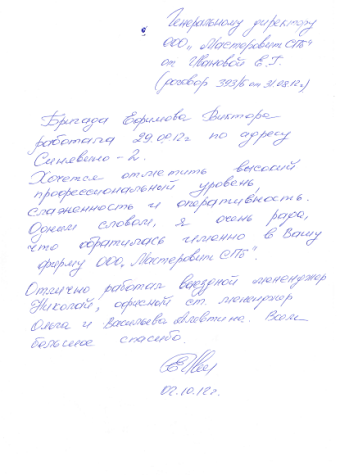 Генеральному директору
ООО „Мастеровит СПб“
от Ивановой Е.Г.
(договор 393/6 от 31.08.12г)
Бригада Ефимова Виктора
работала 29.09.12г по адресу
Синявено-2.
Хочется отметить высокий
профессиональный уровень,
слаженность и оперативность.
Одним словом, я очень рада,
что обратилась именно в Вашу
фирму ООО „Мастеровит СПб“.
Отлично работал выездной менеджер
Николай, офисной ст. менеджер
Ольга и Васильева Алевтина. Всем
большое спасибо.
02.10.12г.